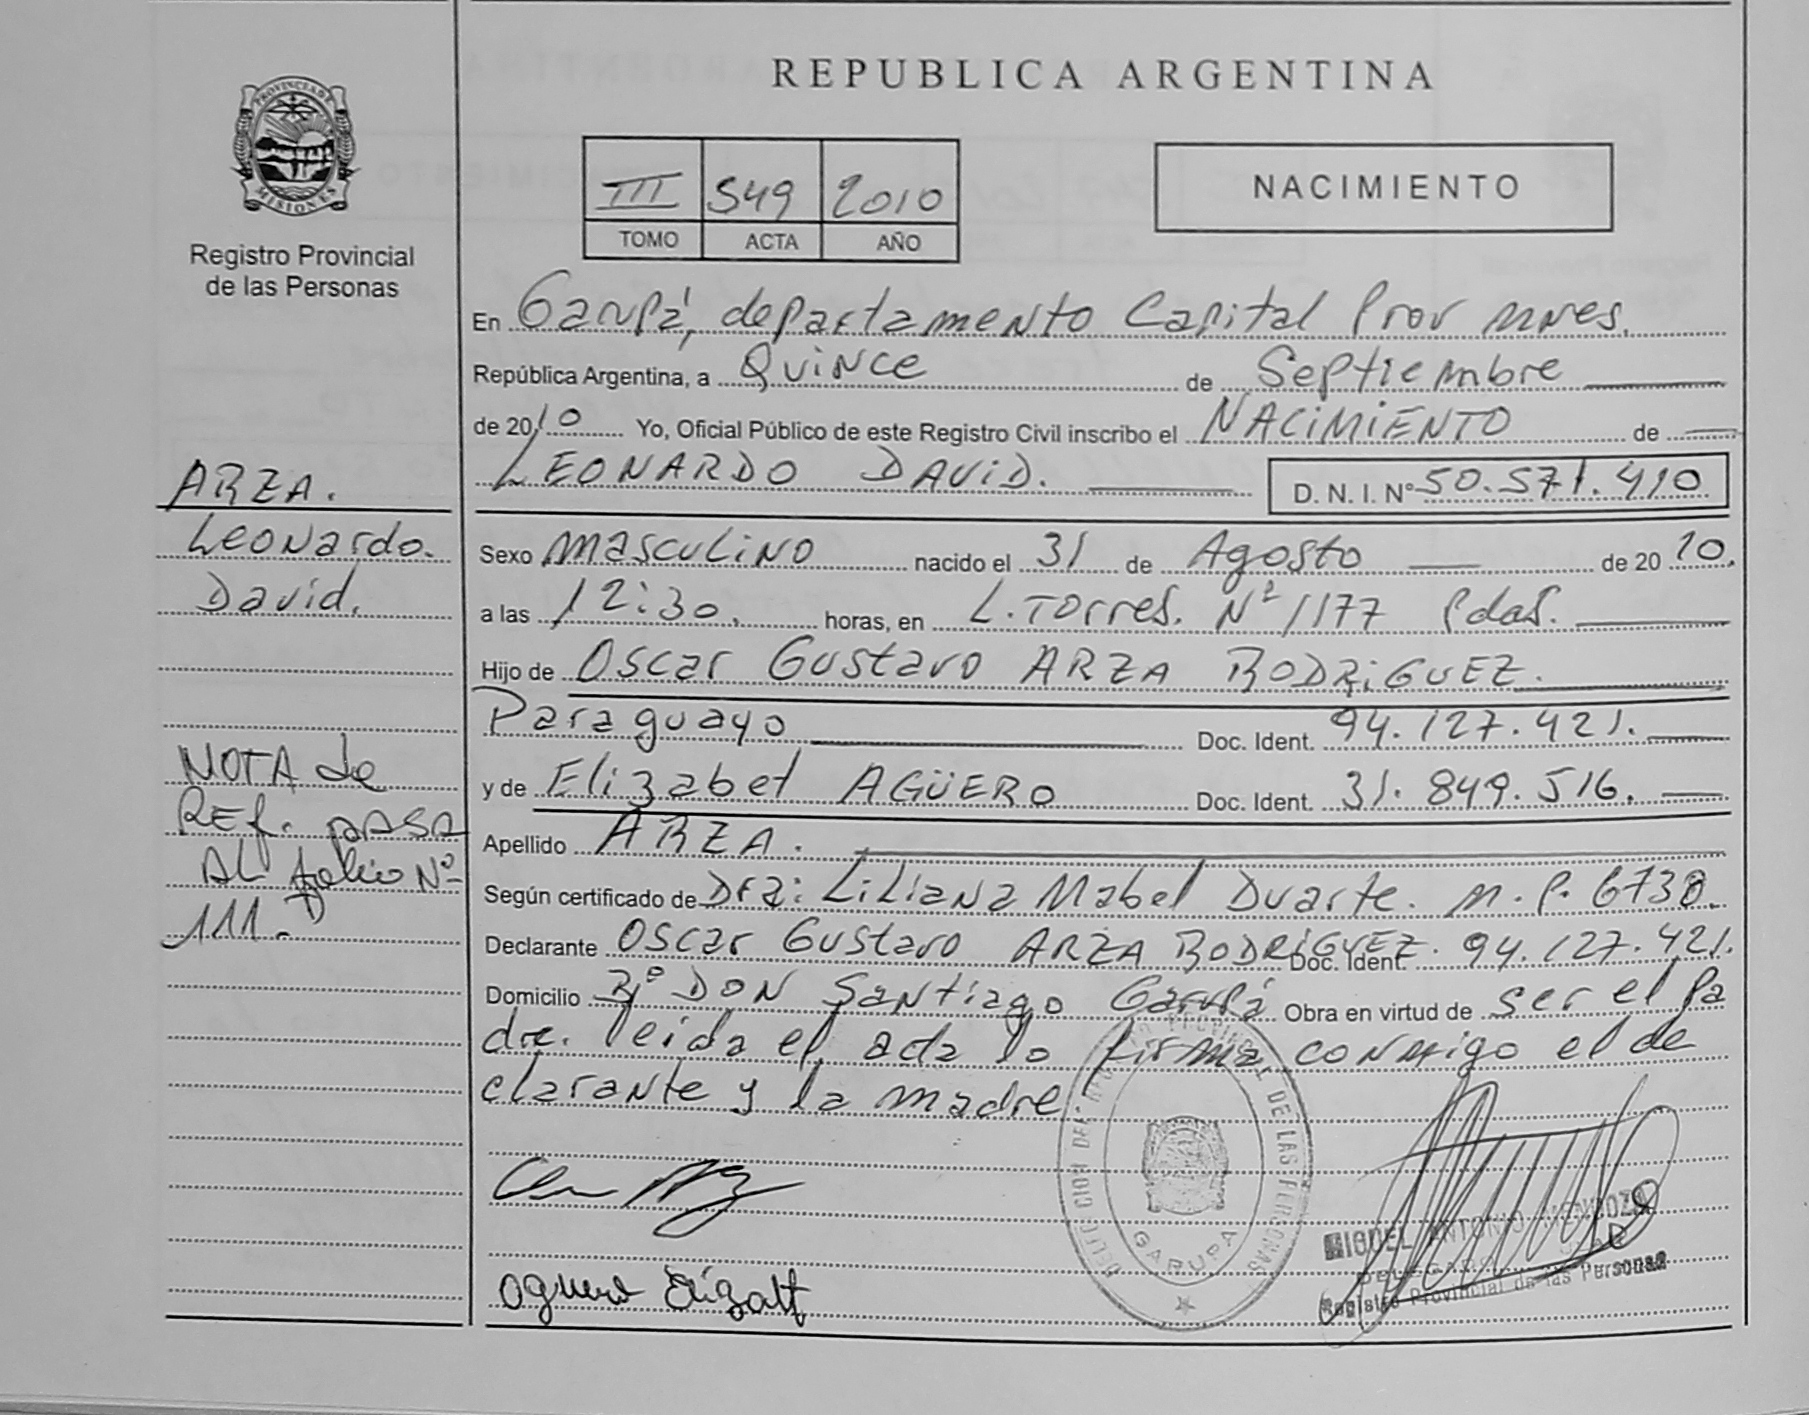 REPUBLICA ARGENTINA
PROVINCIA DE
MISIONES
Registro Provincial
de las Personas
III 549 2010
TOMO ACTA AÑO
NACIMIENTO
En Garupá, departamento Capital Prov Mnes.
República Argentina, a Quince de Septiembre
de 2010 Yo, Oficial Público de este Registro Civil inscribo el NACIMIENTO de
LEONARDO DAVID. D. N. I. Nº 50.571.410
ARZA.
Leonardo.
David.
Sexo masculino nacido el 31 de Agosto de 2010.
a las 12:30. horas, en L. Torres. Nº 1177 Pdas.
Hijo de Oscar Gustavo ARZA RODRIGUEZ.
Paraguayo Doc. Ident. 94.127.421.
y de Elizabet AGÜERO Doc. Ident. 31.849.516.
NOTA de
REf. PASA
AL folio Nº
111.-
Apellido ARZA.
Según certificado de Dra: Liliana Mabel Duarte. M.P. 6738.
Declarante Oscar Gustavo ARZA RODRÍGUEZ. Doc. Ident. 94.127.421.
Domicilio Bº DON Santiago Garupá Obra en virtud de ser el Pa
dre. leida el acta lo firma conmigo el de
clarante y la madre
DELEGACION DEL REGISTRO PROVINCIAL DE LAS PERSONAS
GARUPA
Aguero Elizabet
MIGUEL ANTONIO MENDOZA
Registro Provincial de las Personas